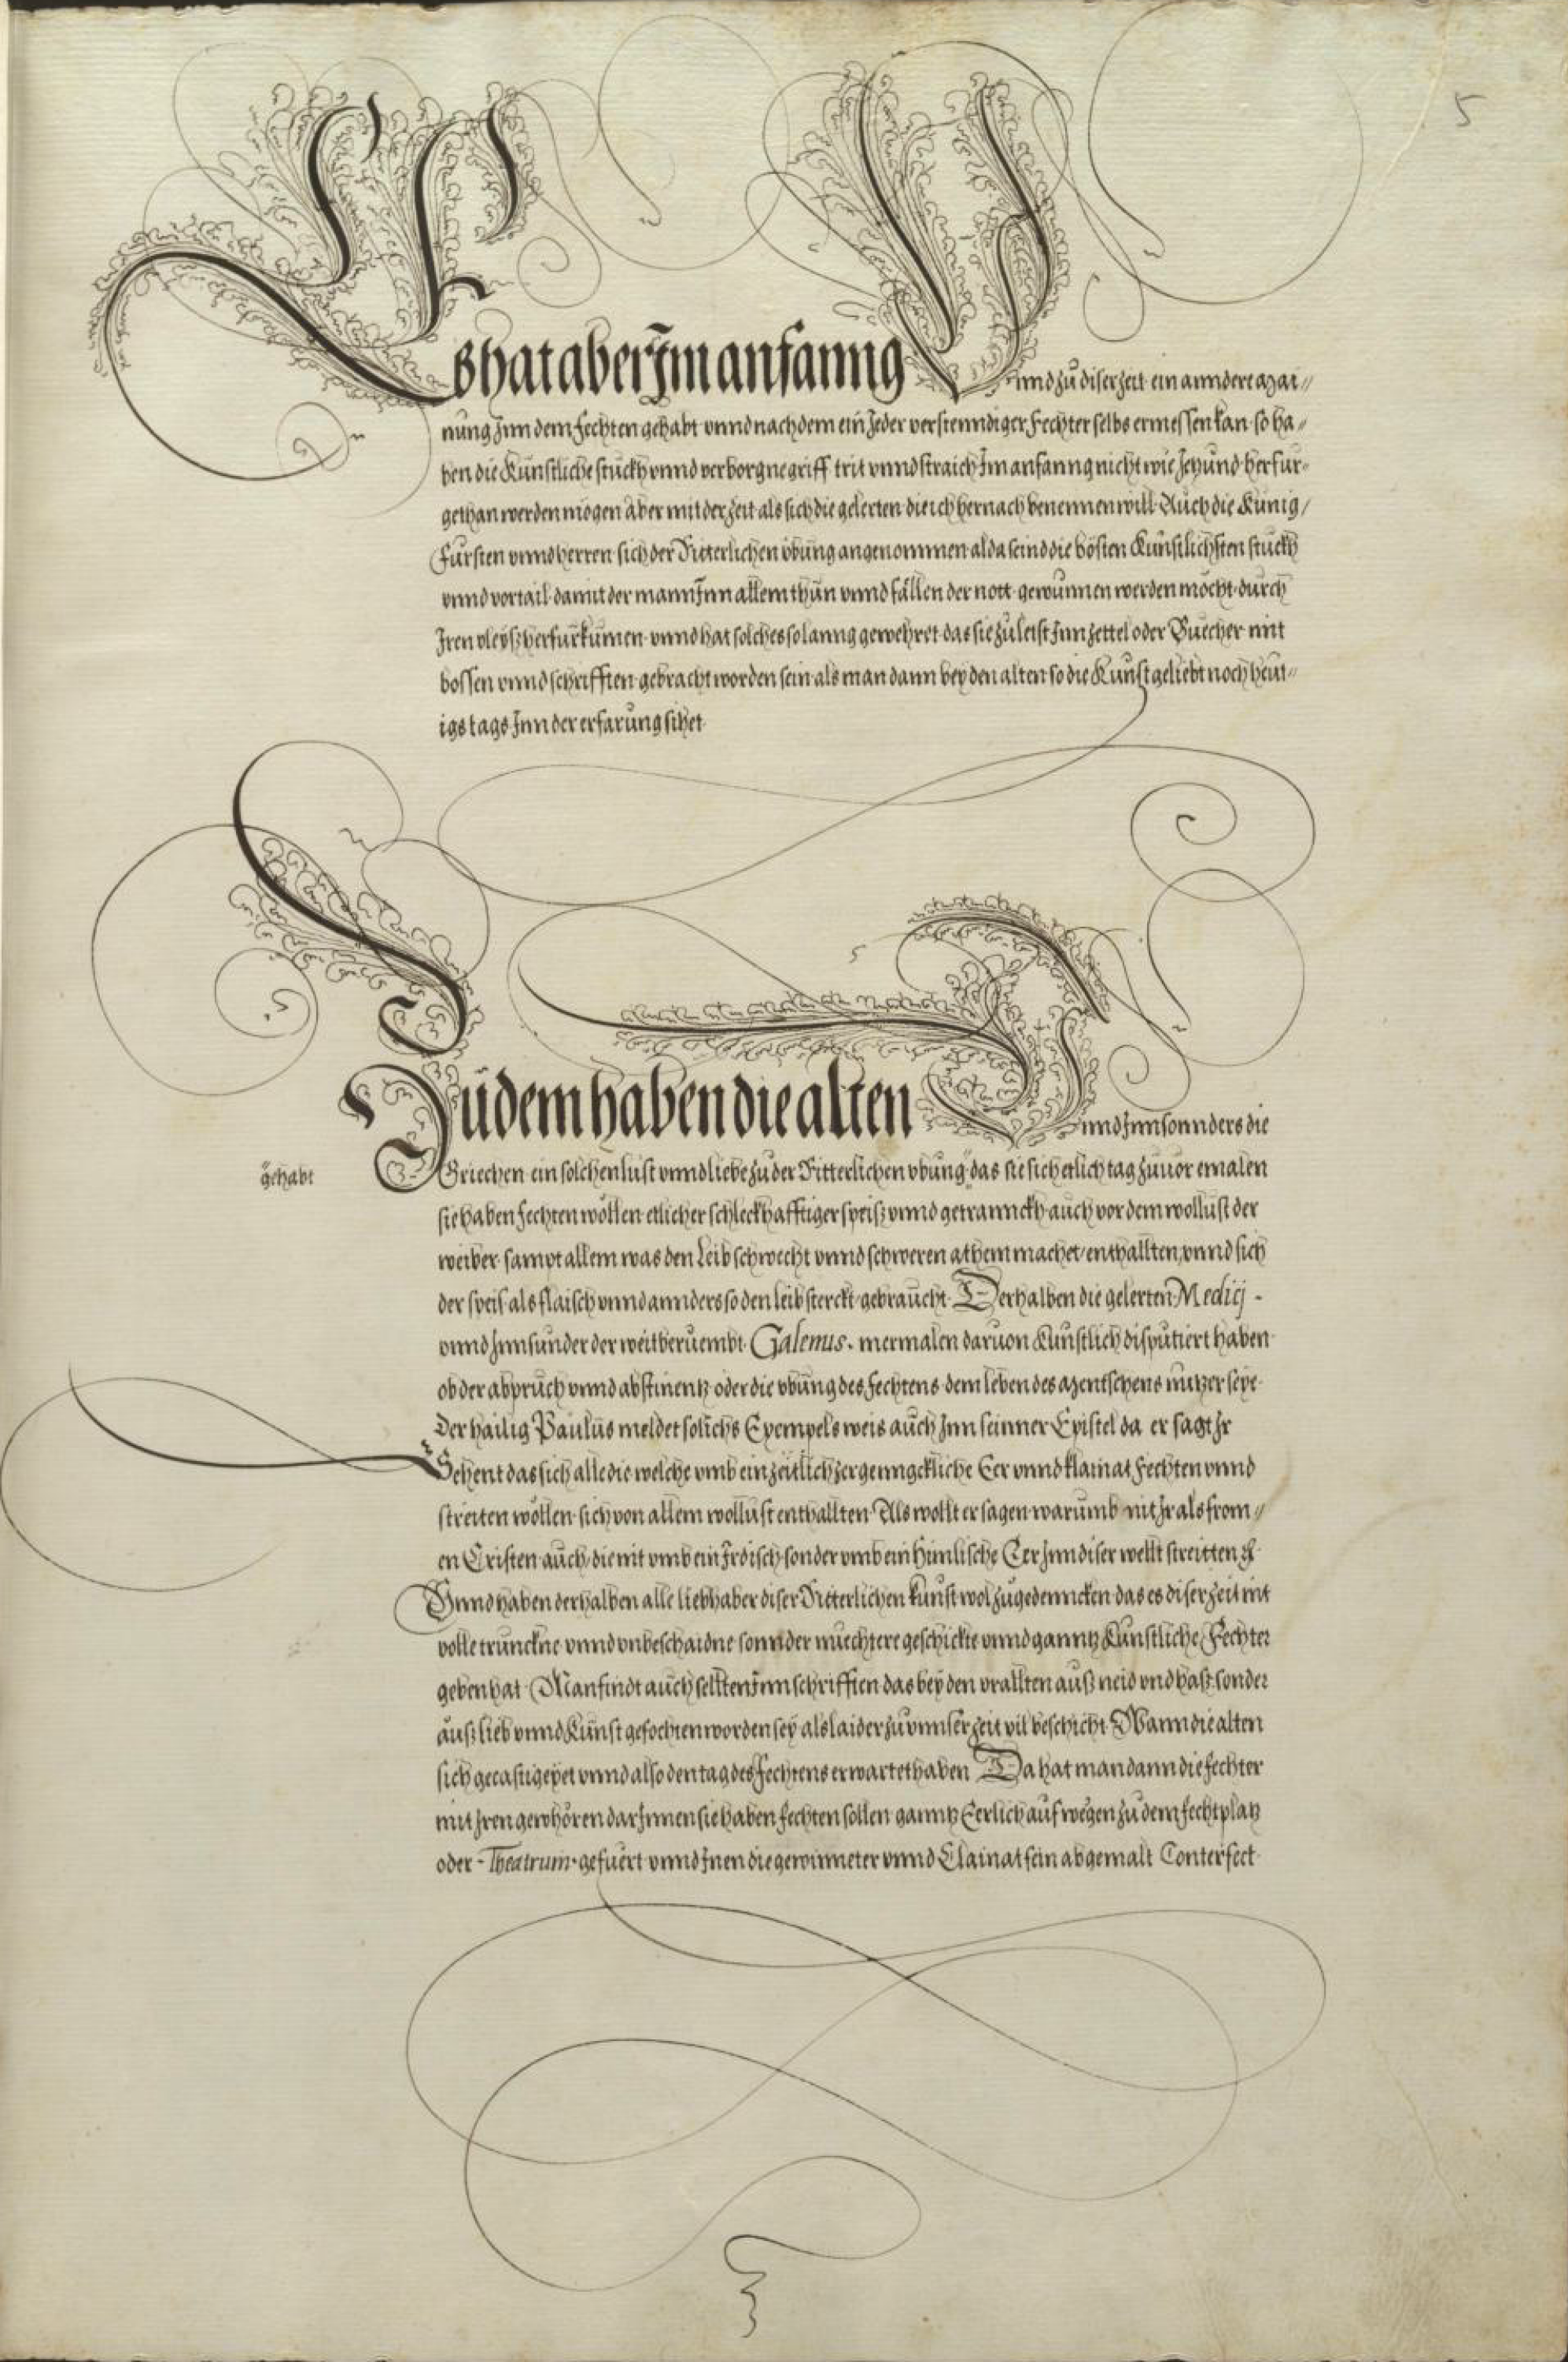 5
Es hat aber Im anfanng Vnnd zů diser zeit ein anndere Mai//
nung Inn dem Fechten gehabt vnnd nach dem ein Jeder verstenndiger Fechter selbs ermessen kan so ha//
ben die Künstliche stuckh vnnd verborgne griff trit vnnd straich Im anfanng nicht wie Jetzund herfur//
gethan werden mögen Aber mit der zeit als sich die gelerten die ich hernach benennen will Auch die Künig /
Fürsten vnnd herren sich der Ritterlichen vbüng angenommen alda seind die bösten Künstlichsten stuckh
vnnd vortail damit der mann Inn allem thün vnnd fällen der nott gewunnen werden möcht durch
Iren vleyß herfürkumen vnnd hat solches solanng gewehret das sie zů letst Inn zettel oder Buecher mit
bossen vnnd schrifften gebracht worden sein als man dann bey den alten so die Kunst geliebt noch heut//
igs tags Inn der erfarung sihet
Zůdem haben die alten Vnnd Inn sonnders die
gehabt
Griechen ein solchen lust vnnd liebe zu der Ritterlichen vbung das sie sich etlich tag züuor emalen
sie haben fechten wöllen etlicher schleckhafftiger speiß vnnd getrannckh auch vor dem wollust der
weiber sampt allem was den Leib schwecht vnnd schweren athem machet enthallten, vnnd sich
der speis als flaisch vnnd annders so den leib sterckt gebraucht Derhalben die gelerten Medicj -
vnnd Inn sunder der weitberuembt Galenus. mermalen daruon Künstlich disputiert haben
ob der abpruch vnnd abstinentz oder die vbung des fechtens dem leben des Mentschens nutzer seye
Der hailig Paulus meldet solichs Exempels weis auch Inn seinner Epistel da er sagt Ir
Sehent das sich alle die welche vmb ein zeitlich zergenngckliche Eer vnnd klainat Fechten vnnd
streiten wöllen sich von allem wollust enthallten Als wollt er sagen warumb nit Ir als from //
en Cristen auch, die nit vmb ein Irdisch sonder vmb ein Himlische Eer Inn diser wellt streitten &
Vnnd haben derhalben alle liebhaber diser Ritterlichen kunst wol zugedenncken das es diser zeit nit
volle trunckne vnnd vnbeschaidne sonnder nuechtere geschickte vnnd ganntz Künstliche Fechter
geben hat Man findt auch sellten Inn schrifften das bey den vrallten auß neid vnd haß sonder
auß lieb vnnd Kunst gefochten worden sey als laider zu vnnser zeit vil beschicht Wann die alten
sich gecastigeyet vnnd also den tag des Fechtens erwartet haben Da hat man dann die fechter
mit Iren gewhören darInnen sie haben fechten sollen ganntz Eerlich auf wegen zu dem fechtplatz
oder - Theatrum - gefuert vnnd Inen die gewinneter vnnd Clainat sein abgemalt Conterfect